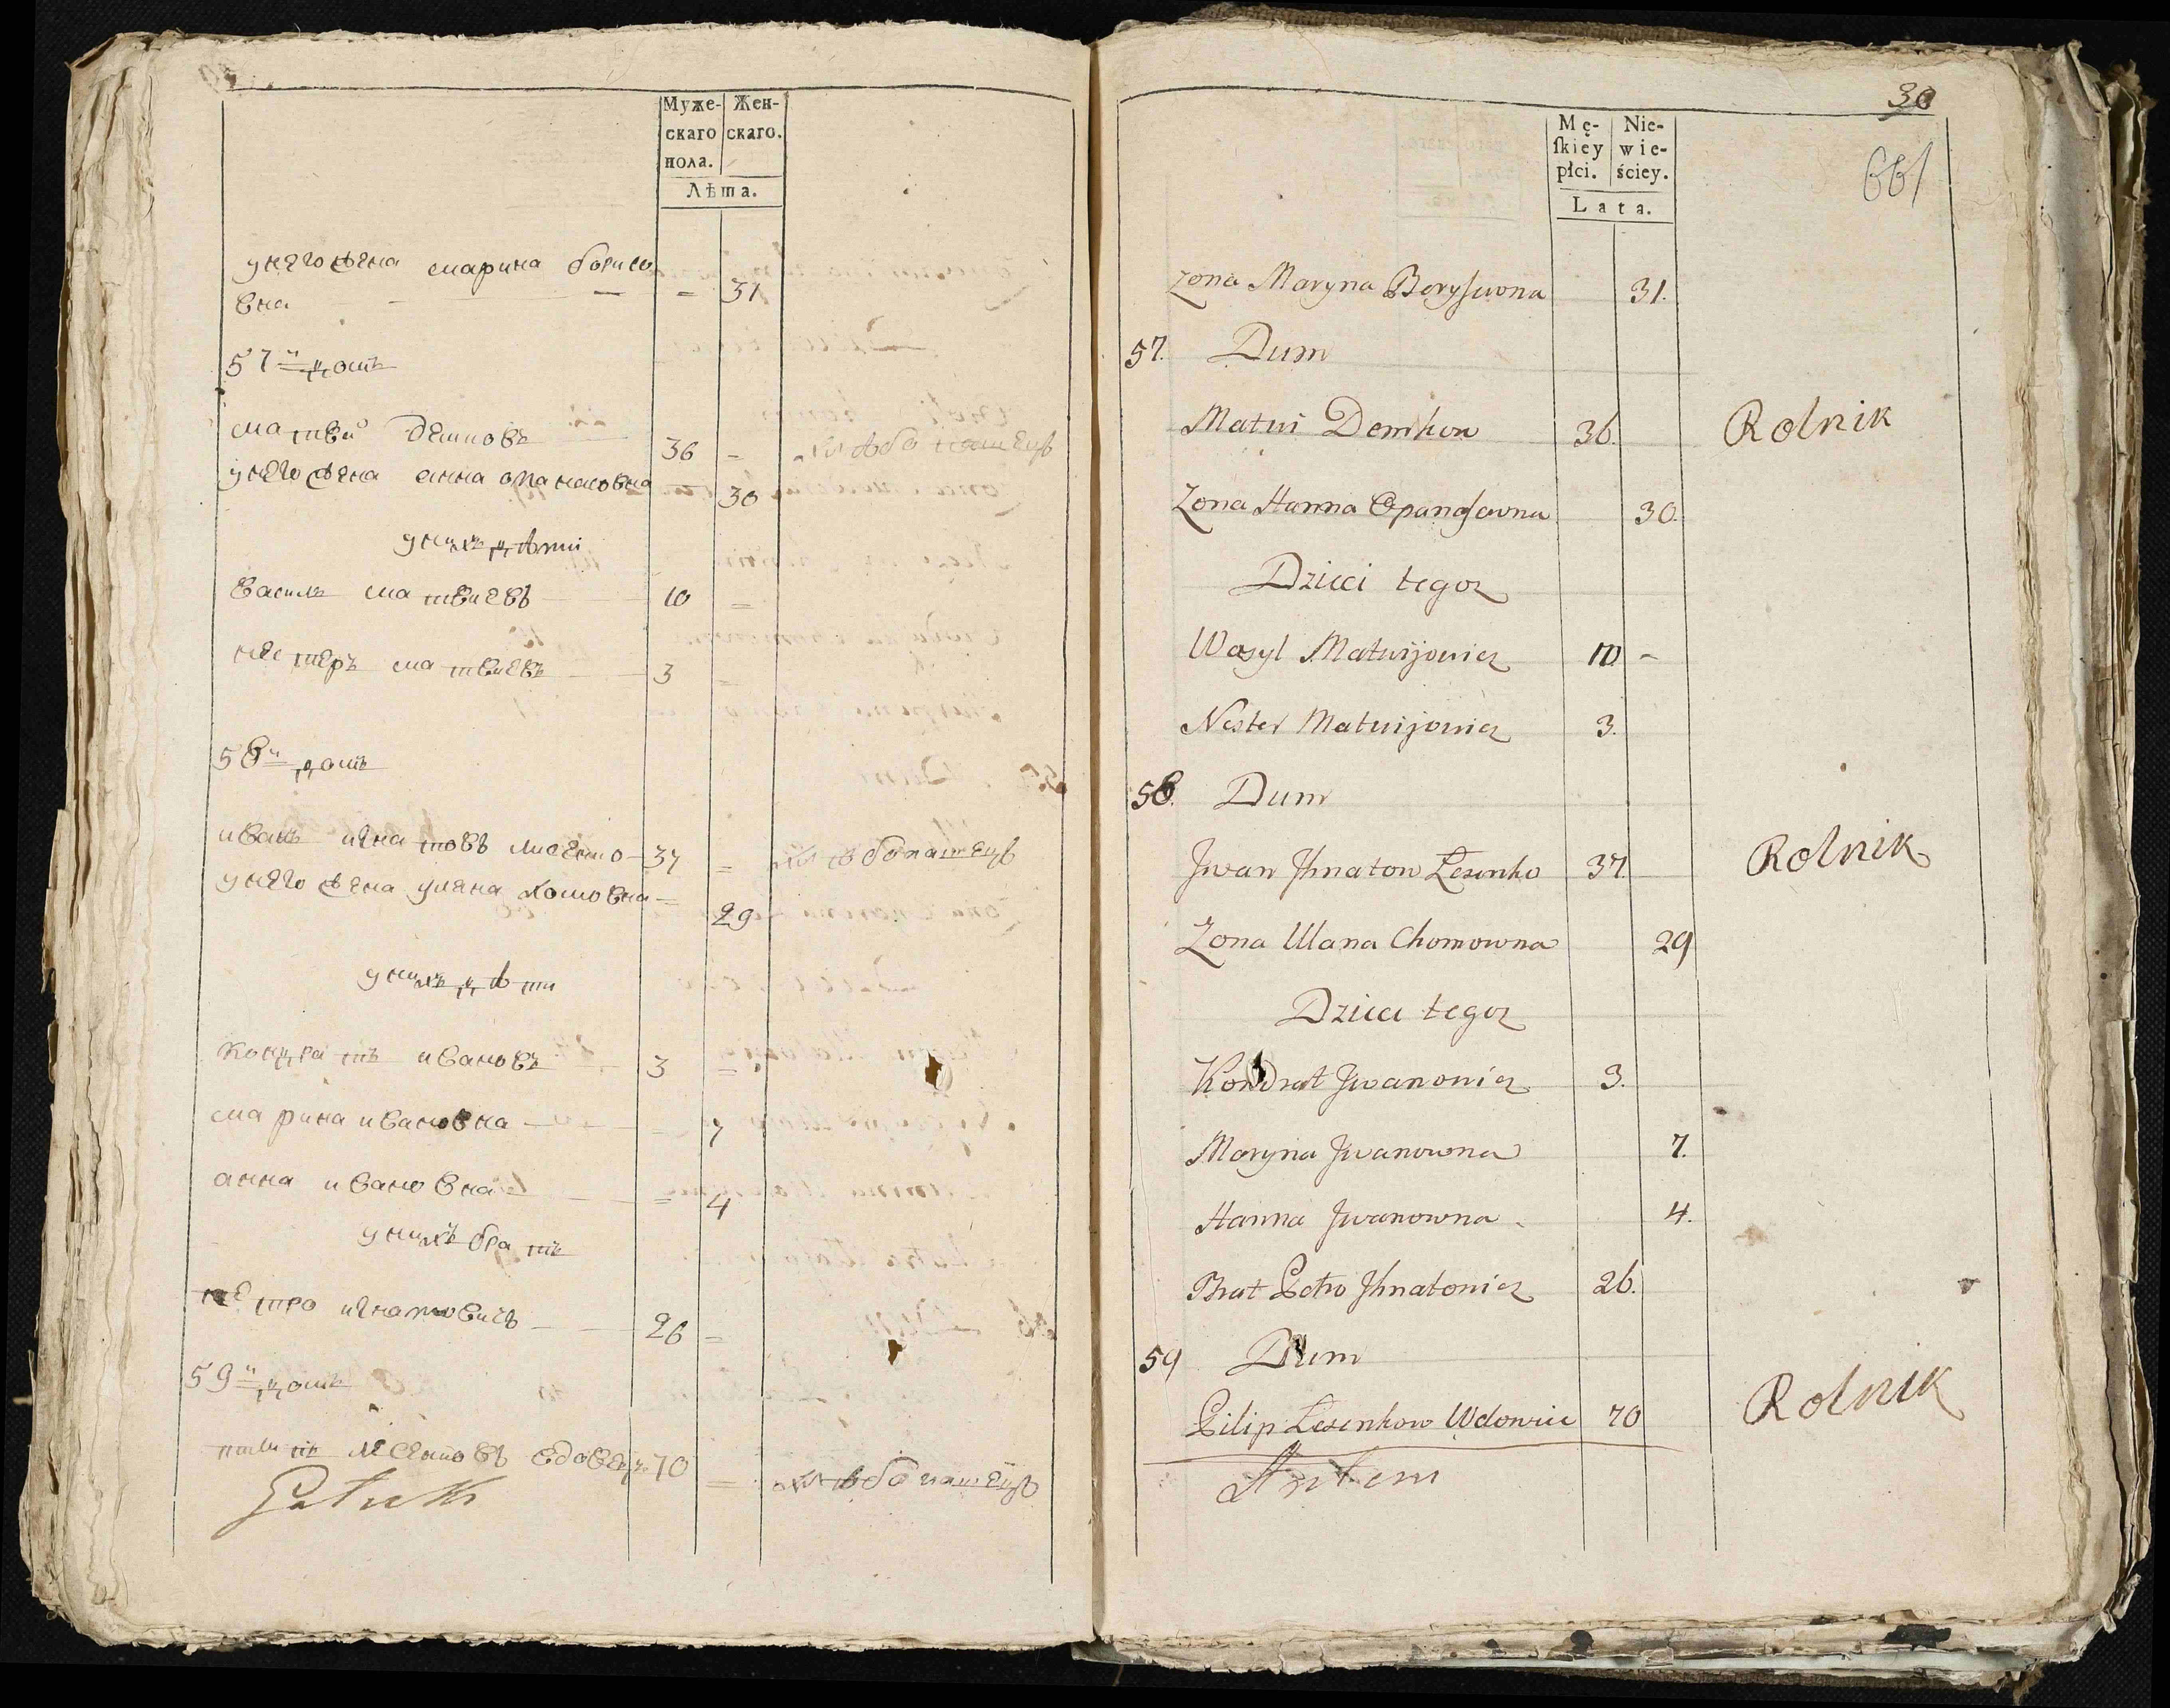 Муже- Жен-
скаго скаго.
пола.
Лѣта.
у него жена марина борисо
вна - 31
57й домъ
матвей демковъ 36 - хлебопашецъ
у него жена анна опанасовна 30
у нихъ дѣти
василь матвиевъ 10
нестеръ матвиевъ 3
58й домъ
иванъ игнатовъ лисенко 37 хлебопашецъ
у него жена уляна хомовна 29
у нихъ дѣти
кондратъ ивановъ 3
марина ивановна 7
анна ивановна 4
у нихъ братъ
петро игнатовичъ 26
59й домъ
пилипъ лесенковъ вдовецъ 70 хлебопашецъ
30
661
Mę- Nie-
ſkiey wie-
płci. ściey.
Lata.
Zona Maryna Borysowna 31.
57. Dum
Matwi Demkow 36. Rolnik
Zona Hanna Opanasowna 30.
Dzieci tegoz
Wasyl Matwijowicz 10 -
Nester Matwijowicz 3.
58. Dum
Jwan Jhnatow Lesenko 37 Rolnik
Zona Ulana Chomowna 29
Dzieci tegoz
Kondrat Jwanowicz 3.
Maryna Jwanowna 7.
Hanna Jwanowna 4.
Brat Petro Jhnatowicz 26.
59 Dum
Pilip Lesenkow Wdowiec 70 Rolnik